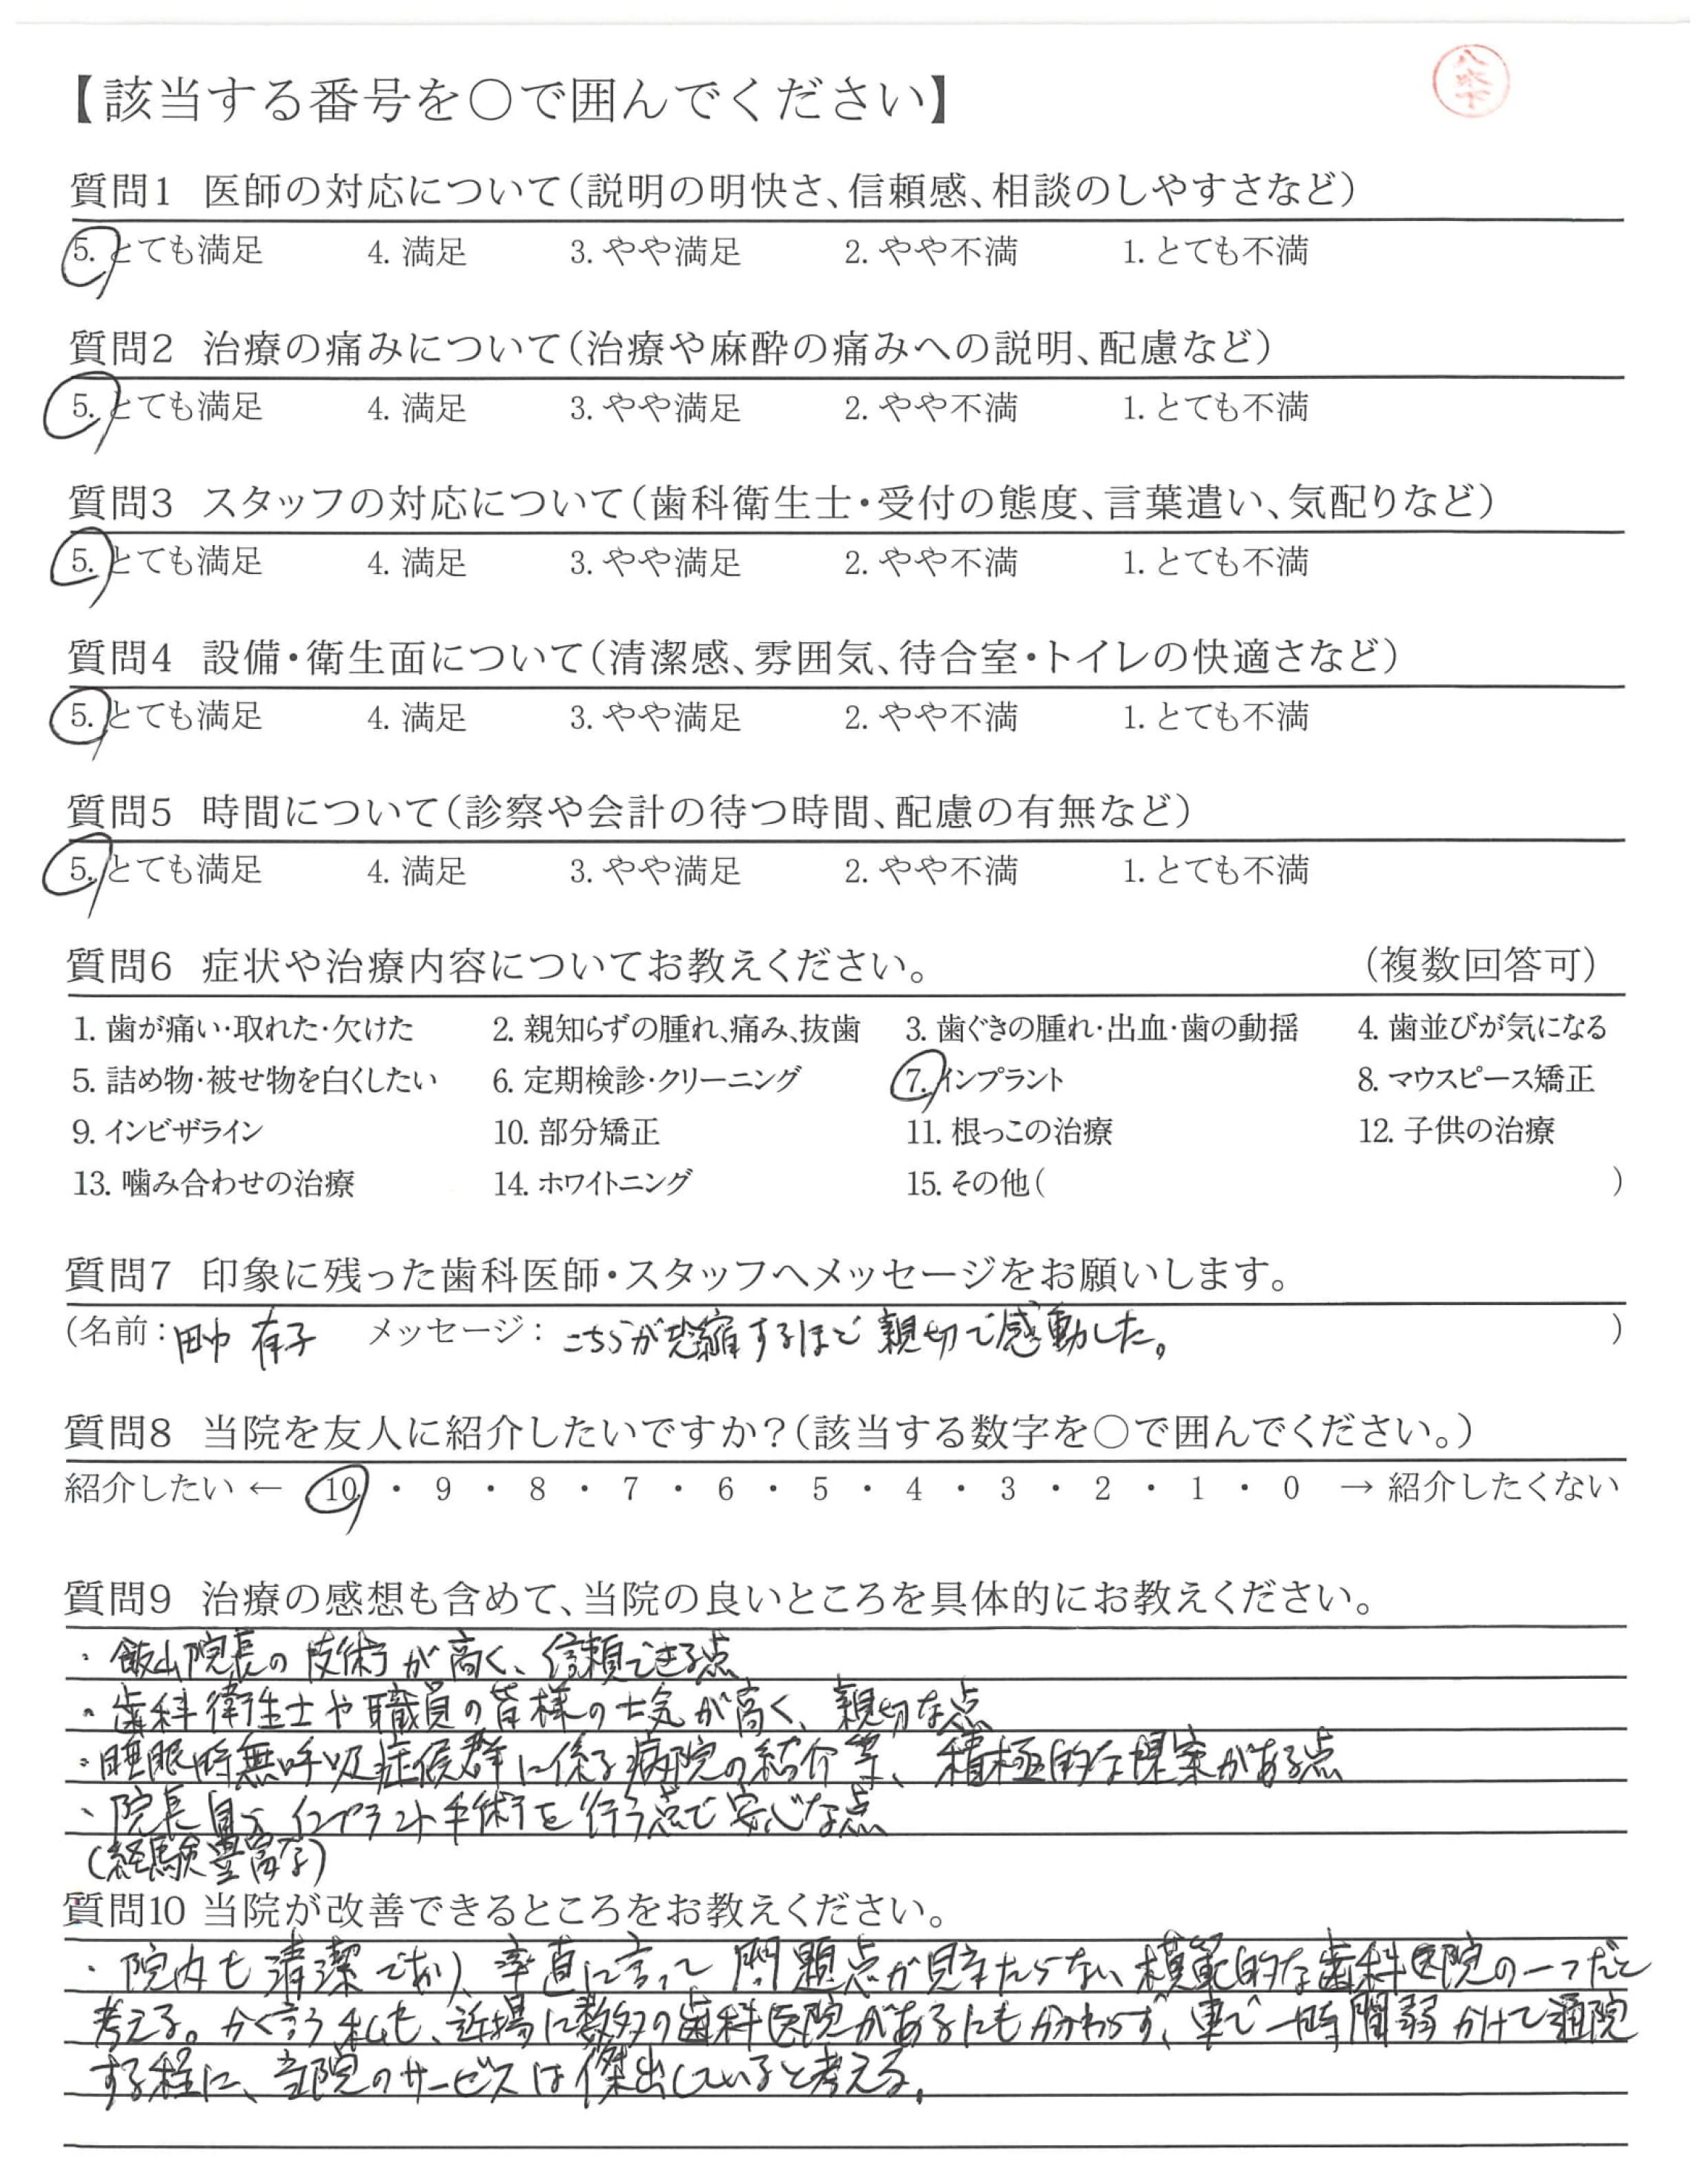 【該当する番号を〇で囲んでください】
質問1 医師の対応について(説明の明快さ、信頼感、相談のしやすさなど)
5. とても満足 4. 満足 3. やや満足 2. やや不満 1. とても不満
質問2 治療の痛みについて(治療や麻酔の痛みへの説明、配慮など)
5. とても満足 4. 満足 3. やや満足 2. やや不満 1. とても不満
質問3 スタッフの対応について(歯科衛生士・受付の態度、言葉遣い、気配りなど)
5. とても満足 4. 満足 3. やや満足 2. やや不満 1. とても不満
質問4 設備・衛生面について(清潔感、雰囲気、待合室・トイレの快適さなど)
5. とても満足 4. 満足 3. やや満足 2. やや不満 1. とても不満
質問5 時間について(診察や会計の待つ時間、配慮の有無など)
5. とても満足 4. 満足 3. やや満足 2. やや不満 1. とても不満
質問6 症状や治療内容についてお教えください。 (複数回答可)
1. 歯が痛い・取れた・欠けた 2. 親知らずの腫れ、痛み、抜歯 3. 歯ぐきの腫れ・出血・歯の動揺 4. 歯並びが気になる
5. 詰め物・被せ物を白くしたい 6. 定期検診・クリーニング 7. インプラント 8. マウスピース矯正
9. インビザライン 10. 部分矯正 11. 根っこの治療 12. 子供の治療
13. 噛み合わせの治療 14. ホワイトニング 15. その他( )
質問7 印象に残った歯科医師・スタッフへメッセージをお願いします。
(名前: 田中 有子 メッセージ: こちらが恐縮するほど親切で感動した。 )
質問8 当院を友人に紹介したいですか?(該当する数字を〇で囲んでください。)
紹介したい ← 10 ・ 9 ・ 8 ・ 7 ・ 6 ・ 5 ・ 4 ・ 3 ・ 2 ・ 1 ・ 0 → 紹介したくない
質問9 治療の感想も含めて、当院の良いところを具体的にお教えください。
・飯山院長の技術が高く、信頼できる点
・歯科衛生士や職員の皆様の士気が高く、親切な点
・睡眠時無呼吸症候群に係る病院の紹介等、積極的な提案がある点
・院長自らインプラント手術を行う点で安心な点
(経験豊富な)
質問10 当院が改善できるところをお教えください。
・院内も清潔であり、率直に言って問題点が見当たらない模範的な歯科医院の一つだと
考える。かく言う私も、近場に数多の歯科医院があるにも分わらず、車で一時間弱かけて通院
する程に、当院のサービスは傑出していると考える。